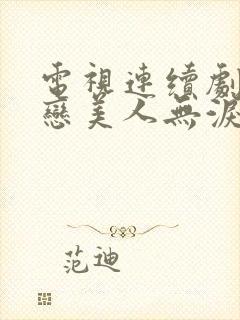 電視連續劇
戀美人無淚
范迪